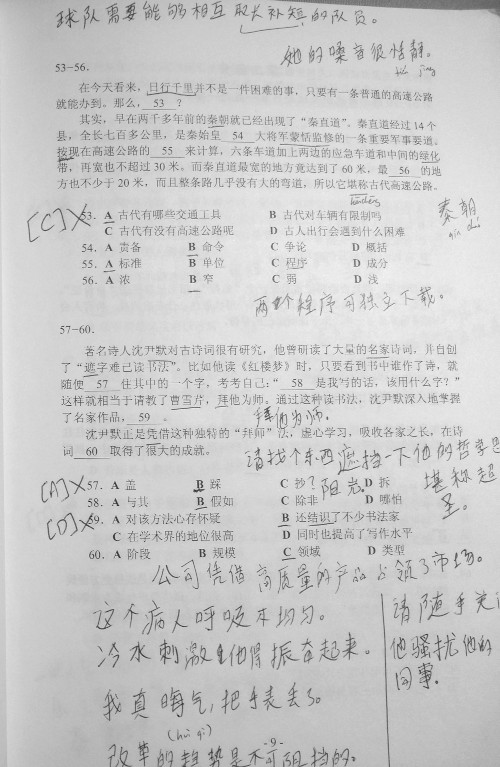 球队需要能够相互取长补短的队员。
她的嗓音很恬静。
tián jìng
53-56.
在今天看来，日行千里并不是一件困难的事，只要有一条普通的高速公路
就能办到。那么， 53 ？
其实，早在两千多年前的秦朝就已经出现了“秦直道”。秦直道经过 14 个
县，全长七百多公里，是秦始皇 54 大将军蒙恬监修的一条重要军事要道。
按现在高速公路的 55 来计算，六条车道加上两边的应急车道和中间的绿化
带，再宽也不超过 30 米，而秦直道最宽的地方竟达到了 60 米，最 56 的地
方也不少于 20 米，而且整条路几乎没有大的弯道，所以它堪称古代高速公路。
kānchēng
秦朝
qín cháo
[C]X
53. A 古代有哪些交通工具 B 古代对车辆有限制吗
C 古代有没有高速公路呢 D 古人出行会遇到什么困难
54. A 责备 B 命令 C 争论 D 概括
55. A 标准 B 单位 C 程序 D 成分
56. A 浓 B 窄 C 弱 D 浅
两个程序可独立下载。
57-60.
著名诗人沈尹默对古诗词很有研究，他曾研读了大量的名家诗词，并自创
了“遮字难己读书法”。比如他读《红楼梦》时，只要看到书中谁作了诗，就
随便 57 住其中的一个字，考考自己：“ 58 是我写的话，该用什么字？”
这样就相当于请教了曹雪芹，拜他为师。通过这种读书法，沈尹默深入地掌握
了名家作品， 59 。
拜他为师。
沈尹默正是凭借这种独特的“拜师”法，虚心学习，吸收各家之长，在诗
词 60 取得了很大的成就。
请找个东西遮挡一下他的哲学思
阳光。
堪称超
圣。
[A]X
57. A 盖 B 踩 C 抄 D 拆
58. A 与其 B 假如 C 除非 D 哪怕
[D]X
59. A 对该方法心存怀疑 B 还结识了不少书法家
C 在学术界的地位很高 D 同时也提高了写作水平
60. A 阶段 B 规模 C 领域 D 类型
公司凭借高质量的产品占领了市场。
这个病人呼吸不均匀。
冷水刺激使他得振奋起来。
我真晦气，把手表丢了。
(huì qì)
-9-
改革的趋势是不可阻挡的。
请随手关门
他骚扰他的
同事。